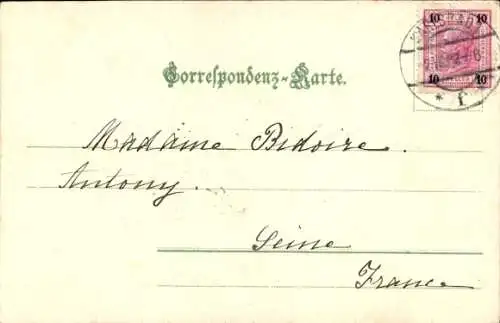 10 10
10 10
Correspondenz-Karte.
Madame Bidoire.
Antony.
Seine
France